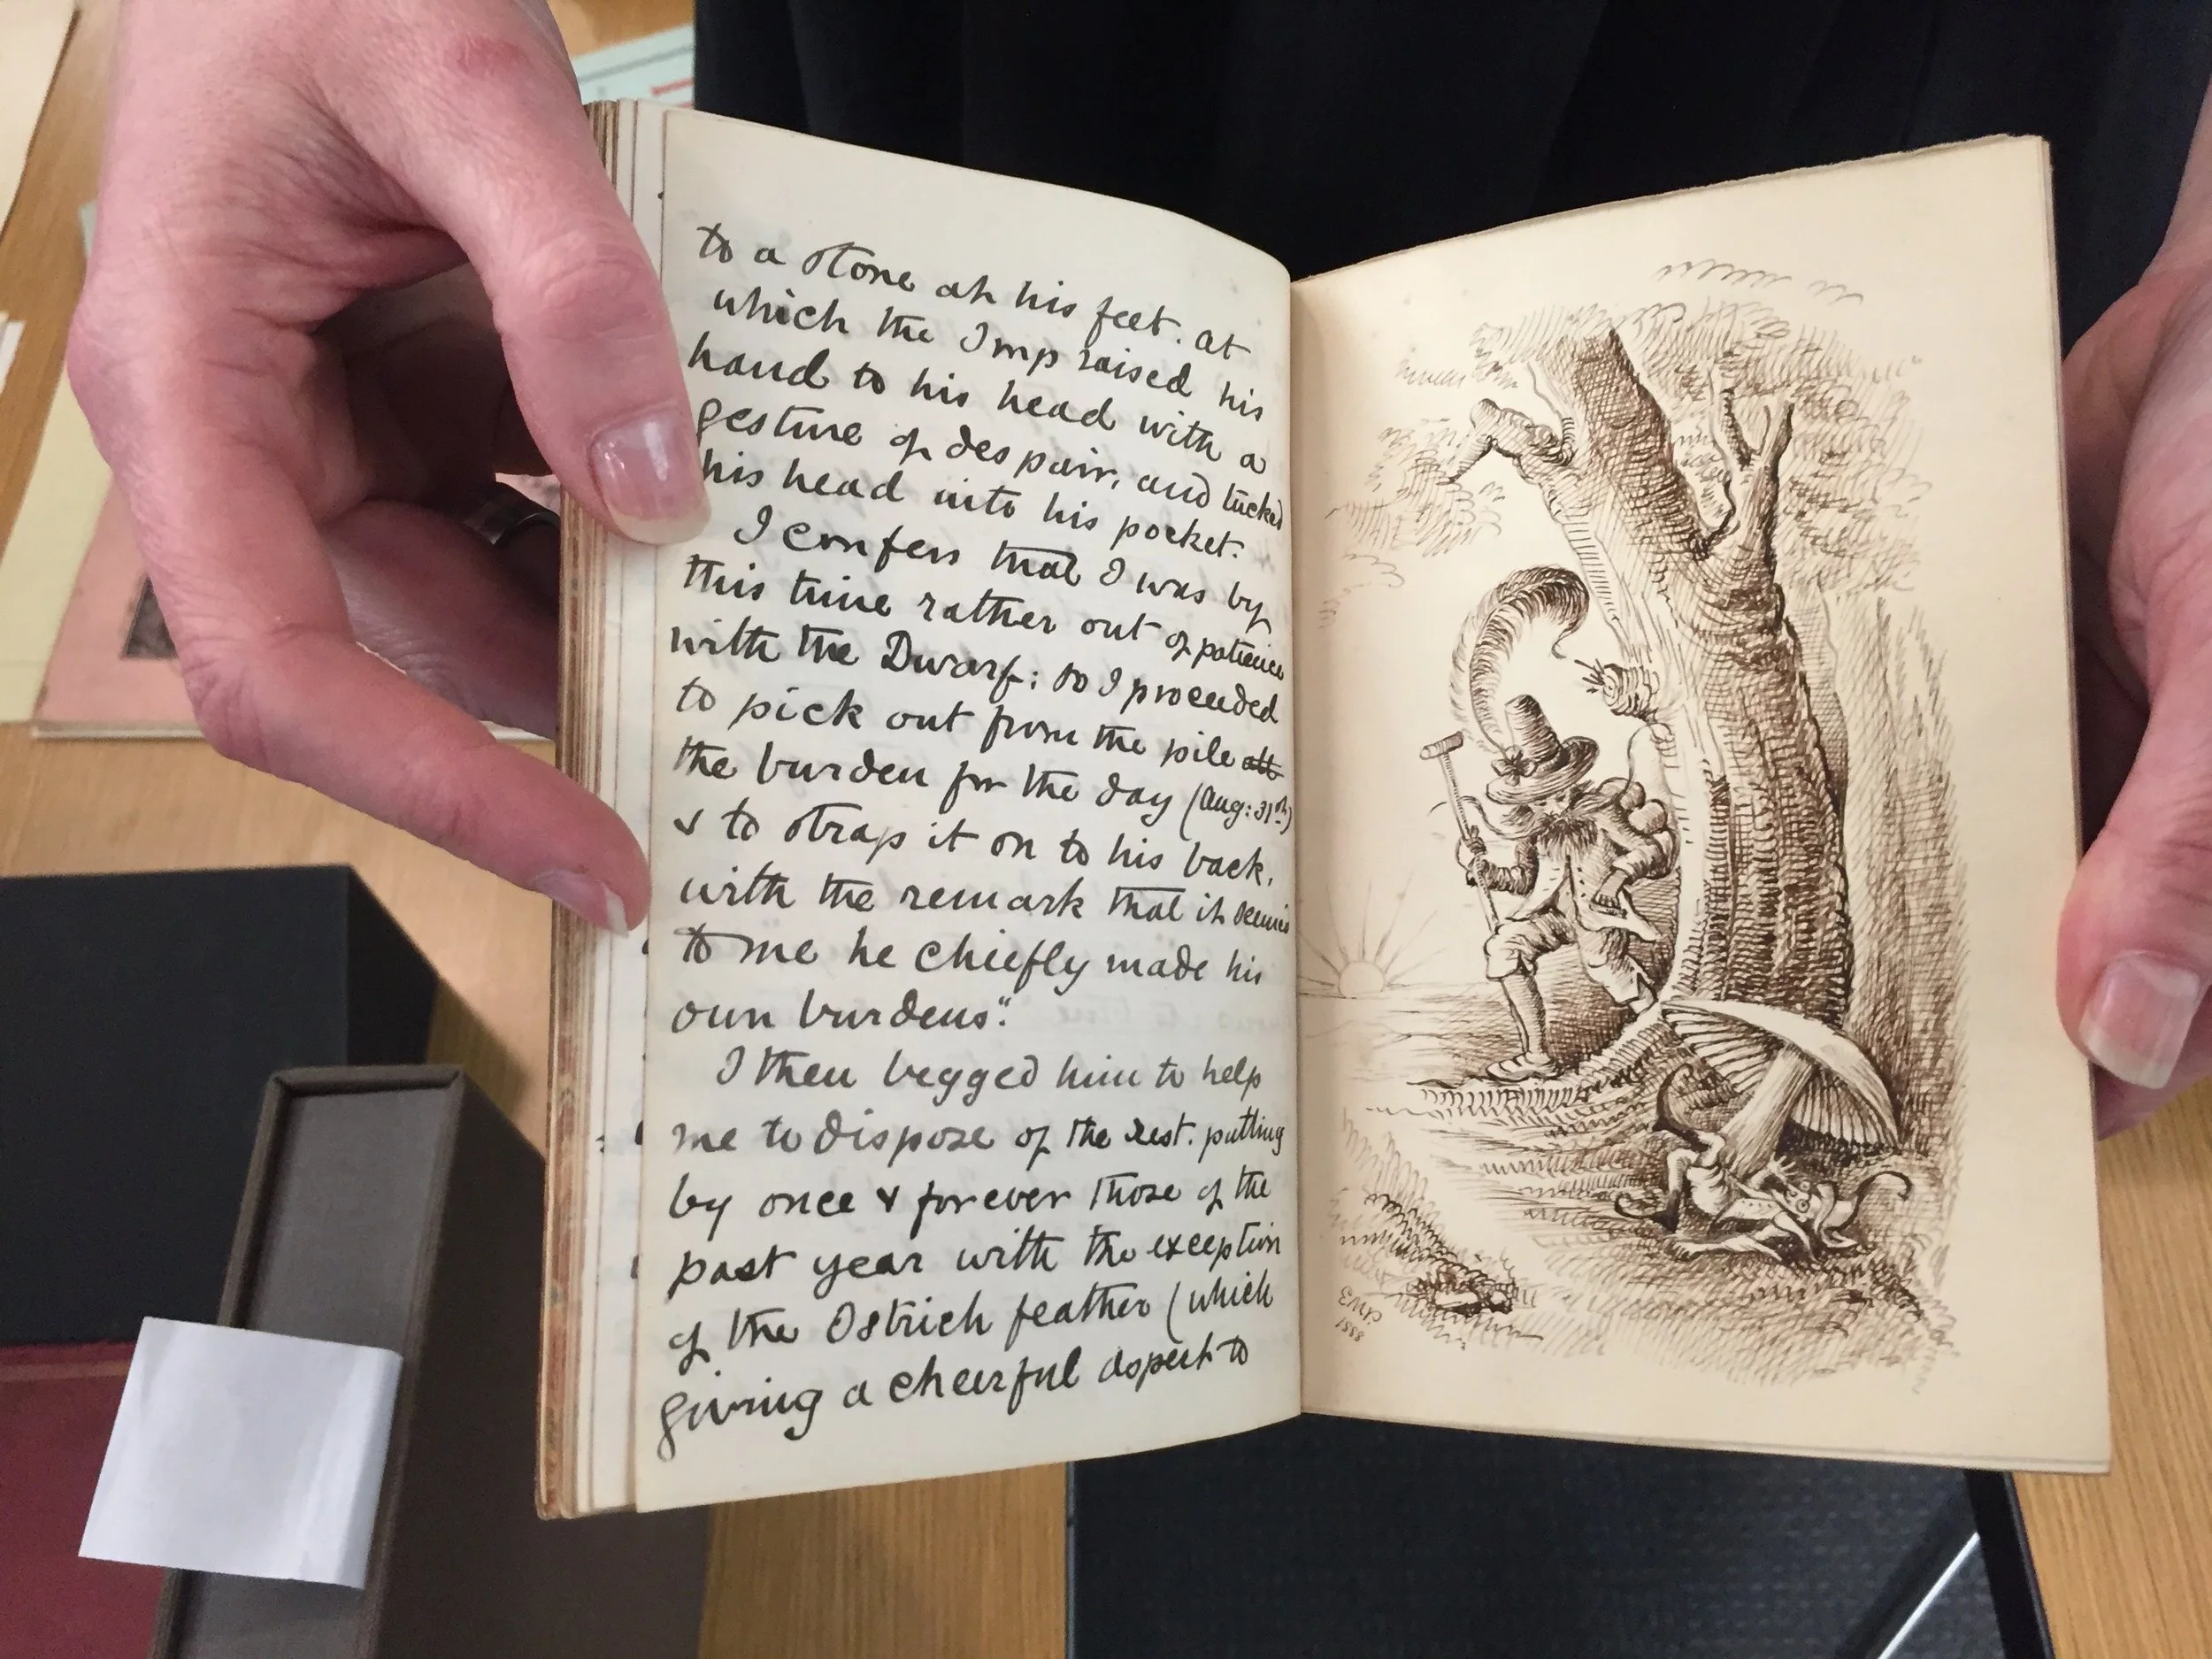 to a stone at his feet. at
which the Imp raised his
hand to his head with a
gesture of despair, and tucked
his head into his pocket.
I confess that I was by
this time rather out of patience
with the Dwarf; so I proceeded
to pick out from the pile all
the burden for the day (Aug: 31st)
& to strap it on to his back,
with the remark that it seems
to me he chiefly "made his
own burdens".
I then begged him to help
me to dispose of the rest. putting
by once & forever those of the
past year with the exception
of the Ostrich feather (which
giving a cheerful aspect to
1888